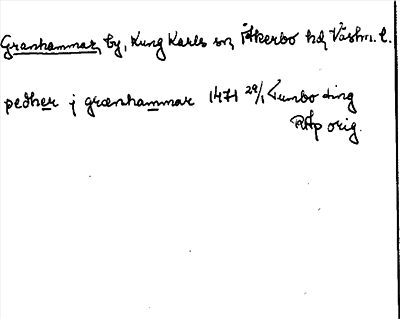 Granhammar, by, Kung Karls sn, Åkerbo hd, Västm. l.
pedher j grænhammar 1471 29/1 Tunbo ting
RAp orig.